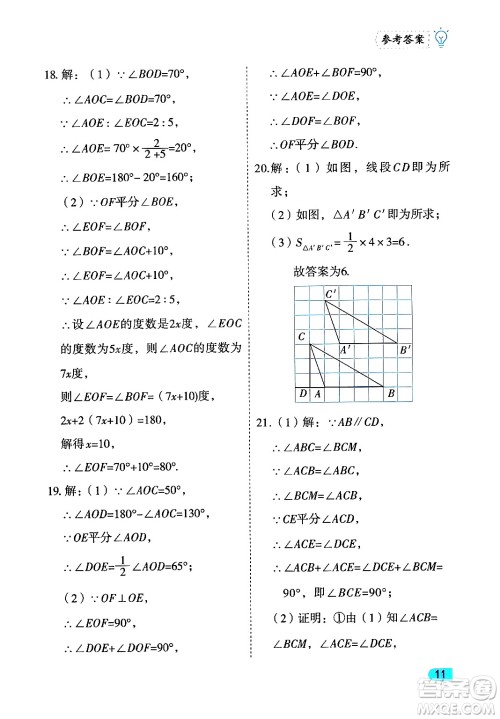 参考答案
18. 解：（1）∵∠BOD=70°，
∴∠AOC=∠BOD=70°，
∵∠AOE∶∠EOC=2∶5，
∴∠AOE= 70°×2/(2+5)=20°，
∴∠BOE=180°-20°=160°.
（2）∵OF平分∠BOE，
∴∠EOF=∠BOF，
∵∠BOF=∠AOC+10°，
∴∠EOF=∠AOC+10°，
∵∠AOE∶∠EOC=2∶5，
∴设∠AOE的度数是2x度，∠EOC
的度数为5x度，则∠AOC的度数为
7x度，
2x+2（7x+10）=180，
解得x=10，
∴∠EOF=70°+10°=80°.
19. 解：（1）∵∠AOC=50°，
∴∠AOD=180°-∠AOC=130°，
∵OE平分∠AOD，
∴∠DOE=1/2∠AOD=65°；
（2）∵OF⊥OE，
∴∠EOF=90°，
∴∠DOE+∠DOF=90°，
∴∠AOE+∠BOF=90°，
∵∠AOE=∠DOE，
∴∠DOF=∠BOF，
∴OF平分∠BOD.
20.解：（1）如图，线段CD即为所
求；
（2）如图，△A′B′C′即为所求；
（3）S△A′B′C′=1/2×4×3=6.
故答案为6.
C′
C A′ B′
D A B
21.（1）解：∵AB∥CD，
∴∠ABC=∠BCM，
∵∠ABC=∠ACB，
∴∠ACB=∠BCM，
∵CE平分∠DCA，
∴∠ACE=∠DCE，
∴∠ACB+∠ACE=∠BCM+∠DCE，
∴∠BCE=90°；
（2）证明：①由（1）知∠ACB=
∠BCM，∠ACE=∠DCE，
11